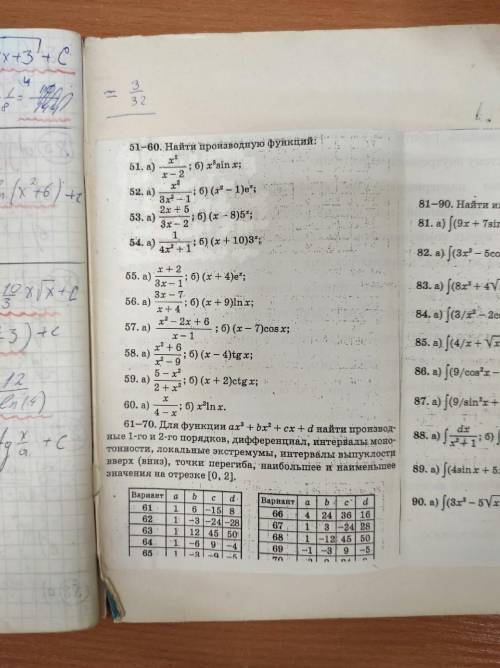 x+3 + C
= 3/32
(x²+6) + c
x√x + C
3) + c
12
ln(4)
+ C
51–60. Найти производную функций:
51. а) x²/(x – 2); б) x³sin x;
52. а) x²/(3x² – 1); б) (x² – 1)eˣ;
53. а) (2x + 5)/(3x – 2); б) (x – 8)5ˣ;
54. а) 1/(4x² + 1); б) (x + 10)3ˣ;
55. а) (x + 2)/(3x – 1); б) (x + 4)eˣ;
56. а) (3x – 7)/(x + 4); б) (x + 9)ln x;
57. а) (x² – 2x + 6)/(x – 1); б) (x – 7)cos x;
58. а) (x² + 6)/(x² – 9); б) (x – 4)tg x;
59. а) (5 – x²)/(2 + x²); б) (x + 2)ctg x;
60. а) x/(4 – x); б) x²ln x.
61–70. Для функции ax³ + bx² + cx + d найти производ-
ные 1-го и 2-го порядков, дифференциал, интервалы моно-
тонности, локальные экстремумы, интервалы выпуклости
вверх (вниз), точки перегиба, наибольшее и наименьшее
значения на отрезке [0, 2].
Вариант a b c d
61 1 6 –15 8
62 1 –3 –24 –28
63 1 12 45 50
64 1 –6 9 –4
65 1 –3 –9 –5
Вариант a b c d
66 4 24 36 16
67 1 3 –24 28
68 1 –12 45 50
69 –1 –3 9 –5
81–90. Найти
81. а) ∫(9x + 7sin
82. а) ∫(3x² – 5co
83. а) ∫(8x² + 4√
84. а) ∫(3/x² – 2co
85. а) ∫(4/x + √x
86. а) ∫(9/cos²x –
87. а) ∫(9/sin²x +
88. а) ∫dx/(x² + 1); б)
89. а) ∫(4sin x + 5
90. а) ∫(3x² – 5√x